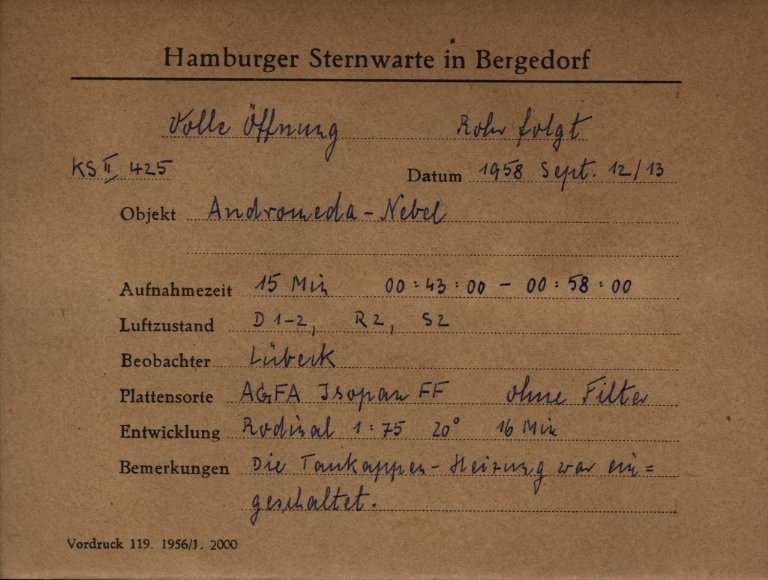 Hamburger Sternwarte in Bergedorf
Volle Öffnung Rohr folgt
KS II 425 Datum 1958 Sept. 12/13
Objekt Andromeda-Nebel
Aufnahmezeit 15 Min 00:43:00 - 00:58:00
Luftzustand D 1-2, R 2, S 2
Beobachter Lübeck
Plattensorte AGFA Isopan FF ohne Filter
Entwicklung Rodinal 1:75 20° 16 Min
Bemerkungen Die Taukappen-Heizung war ein=
geschaltet.
Vordruck 119. 1956/1. 2000